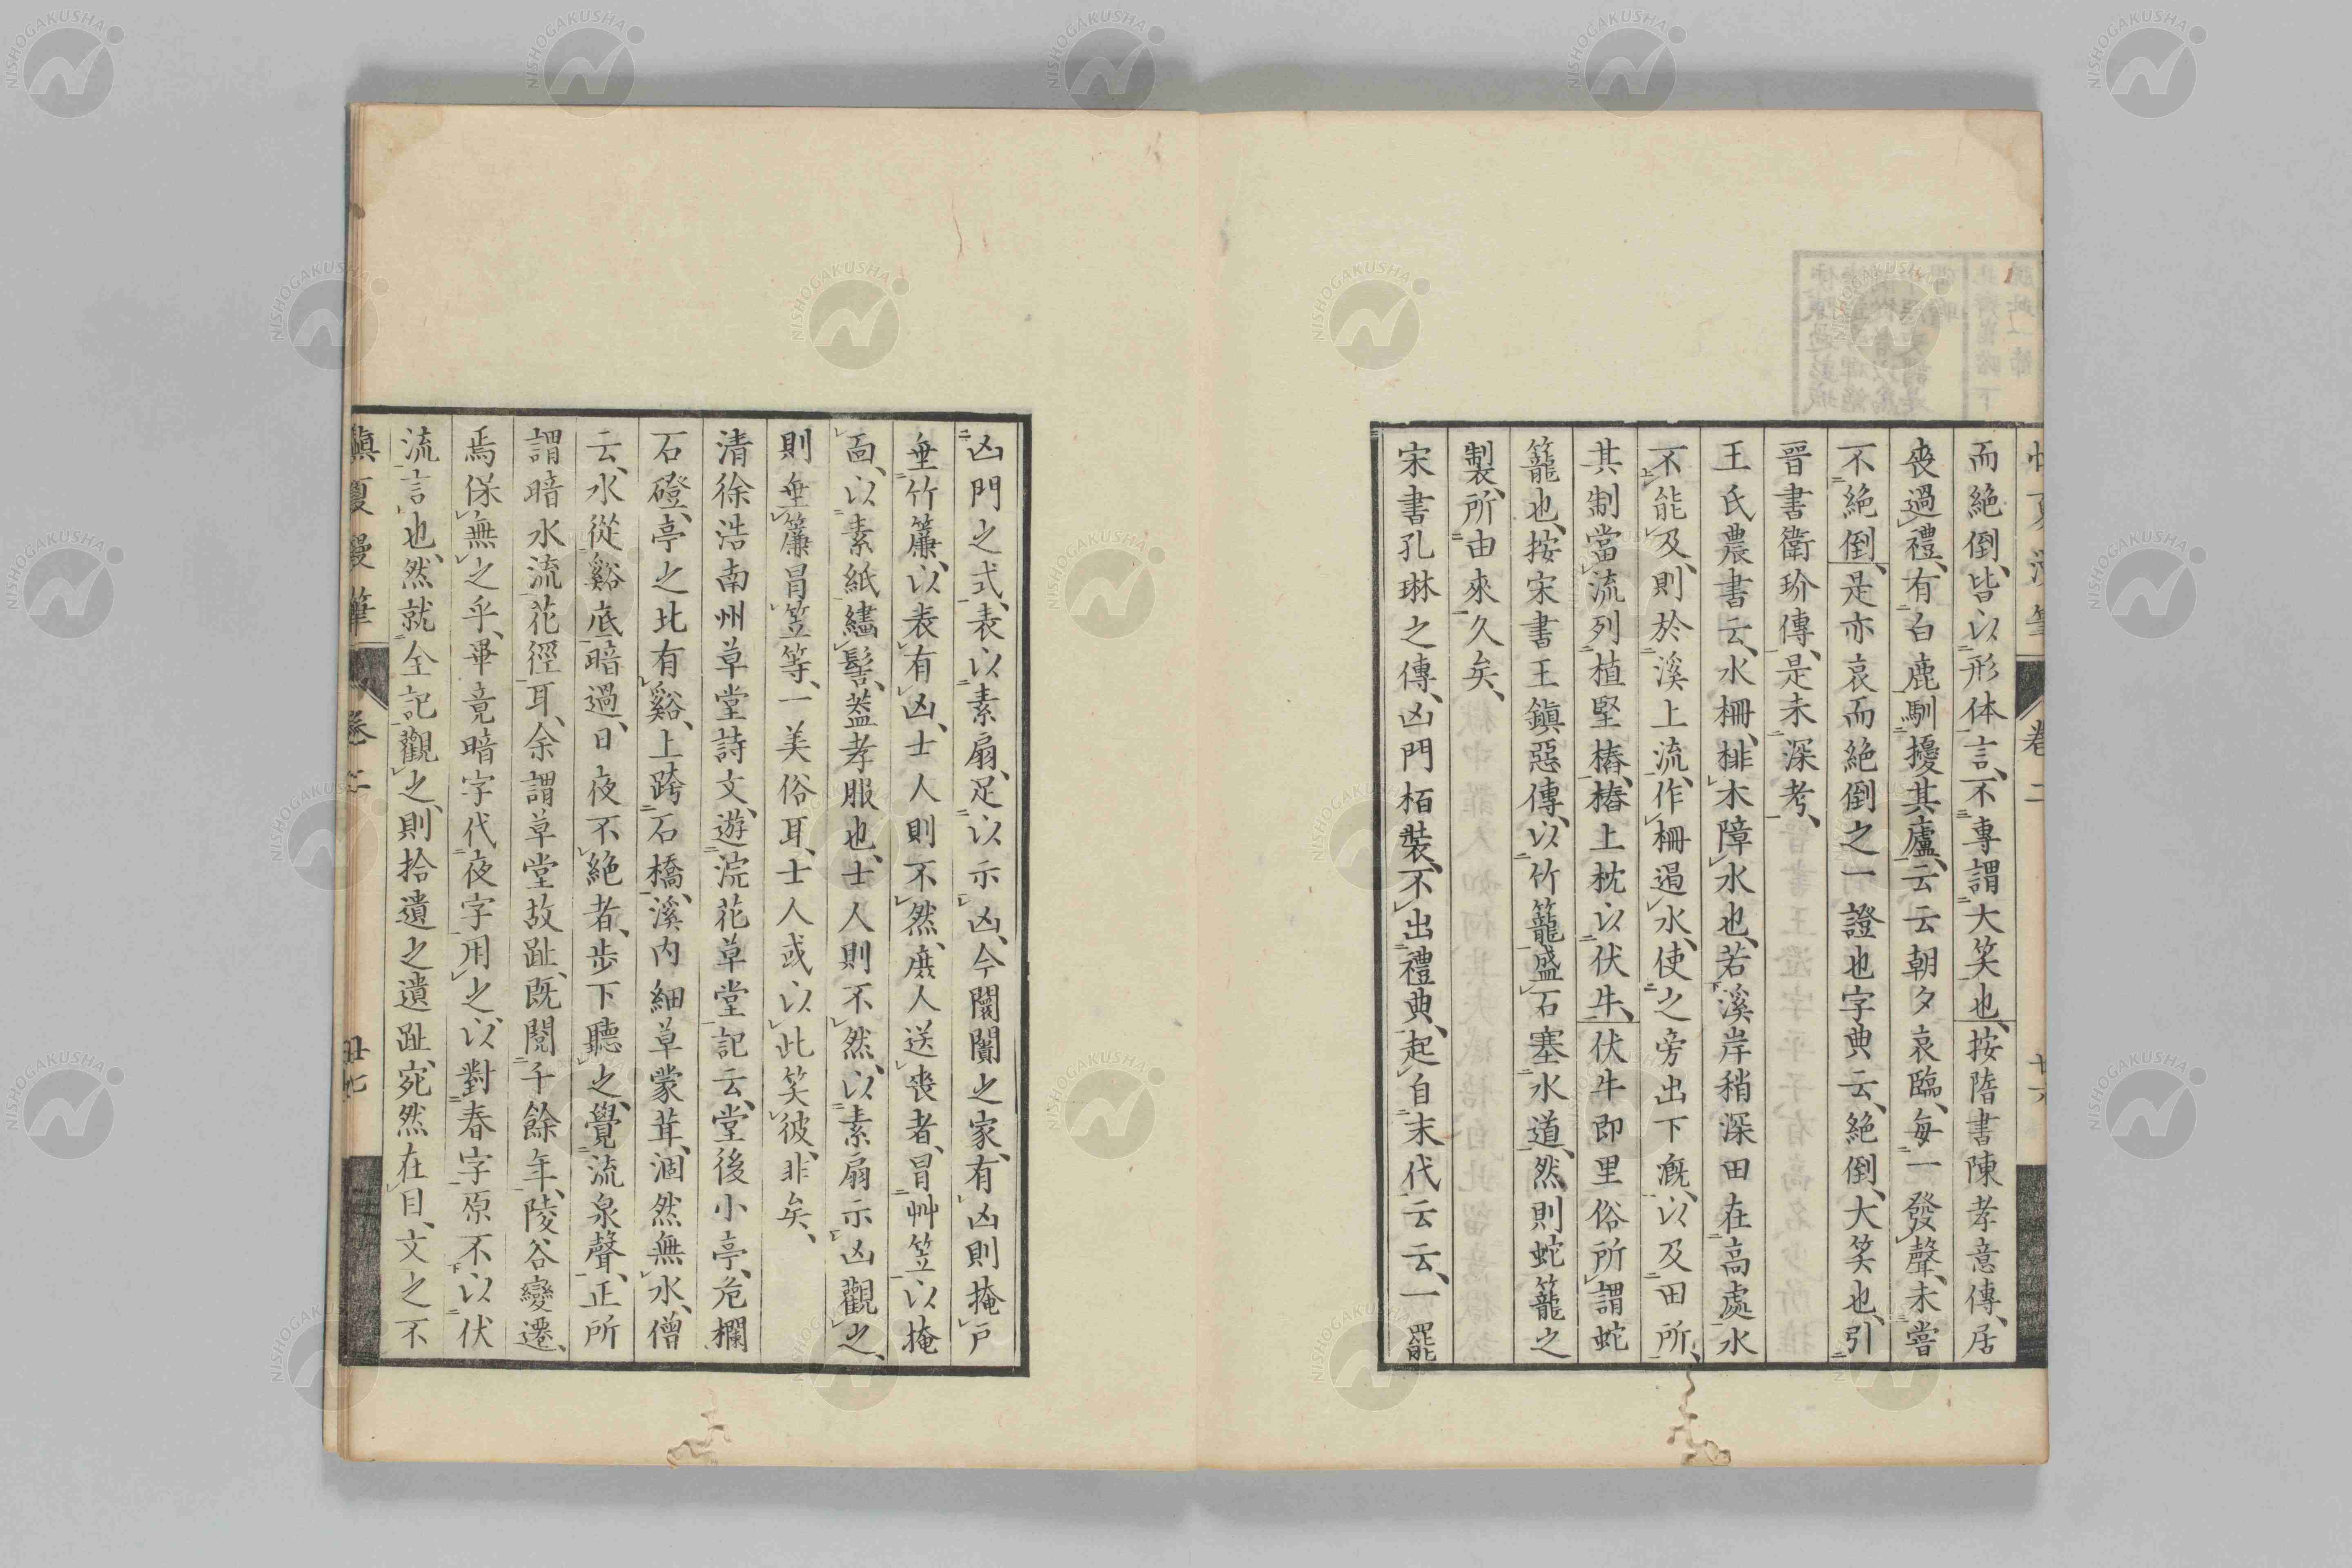 而絶倒、皆以形体言、不專謂大笑也、按隋書陳孝意傳、居
喪過禮、有白鹿馴擾其廬、云云朝夕哀臨、毎一發聲、未嘗
不絶倒、是亦哀而絶倒之一證也字典云、絶倒、大笑也、引
晋書衛玠傳、是未深考、
王氏農書云、水柵、排木障水也、若溪岸稍深田在高處水
不能及、則於溪上流、作柵遏水、使之旁出下漑、以及田所、
其制當流列植竪樁、樁上枕以伏牛、伏牛即里俗所謂蛇
籠也、按宋書王鎭惡傳、以竹籠盛石塞水道、然則蛇籠之
製、所由來久矣、
宋書孔琳之傳、凶門栢裝、不出禮典、起自末代云云、一罷
凶門之式、表以素扇、足以示凶、今闤闠之家、有凶則掩戸
垂竹簾、以表有凶、士人則不然、庶人送喪者、冒艸笠以掩
面、以素紙繣髻、蓋孝服也、士人則不然、以素扇示凶觀之、
則垂簾冒笠等、一美俗耳、士人或以此笑彼、非矣、
清徐浩南州草堂詩文、遊浣花草堂記云、堂後小亭、危欄
石磴、亭之北有谿、上跨石橋、溪内細草蒙茸、涸然無水、僧
云、水從谿底暗過、日夜不絶者、步下聽之、覺流泉聲、正所
謂暗水流花徑耳、余謂草堂故趾、既閲千餘年、陵谷變遷、
焉保無之乎、畢竟暗字代夜字用之、以對春字、原不以伏
流言也、然就全記觀之、則拾遺之遺趾、宛然在目、文之不
慎夏漫筆 卷二 廿七